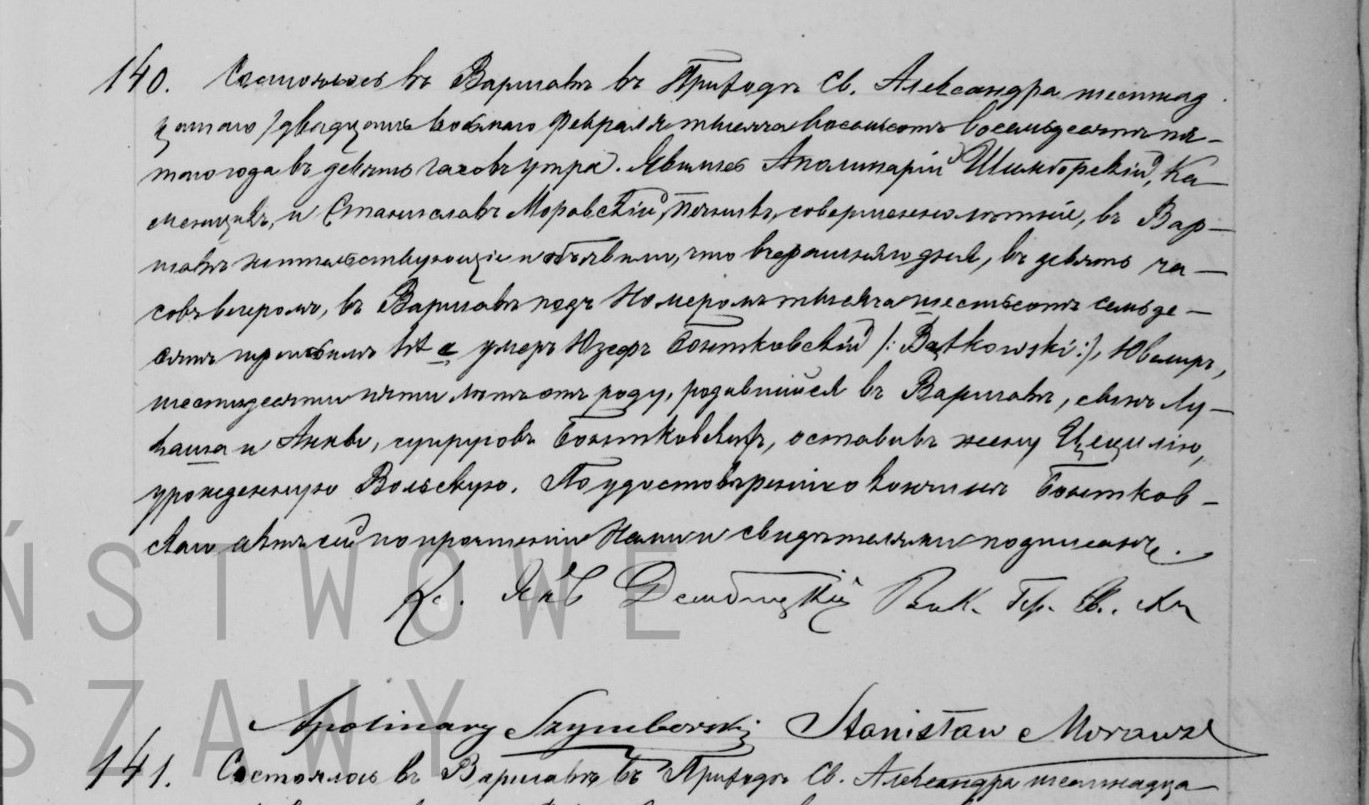 140. Состоялось въ Варшавѣ въ Приходѣ Св. Александра шестнад
цатаго /двадцать восьмаго Февраля тысяча восемьсотъ восемьдесятъ пя-
таго года въ девять часовъ утра. Явились Аполинарій Шимборскій, Ка-
менщикъ, и Станиславъ Моровскій, совершеннолѣтніе, въ Вар-
шавѣ жительствующіе и объявили, что вчерашняго дня, въ девять ча-
совъ вечеромъ, въ Варшавѣ подъ Номеромъ тысяча шестьсотъ семьде-
сятъ третьимъ умеръ Юзефъ Бонтковскій /:Bątkowski:/, Ювелиръ,
шестидесяти пяти лѣтъ отъ роду, родившійся въ Варшавѣ, сынъ Лу-
каша и Анны, супруговъ Бонтковскихъ, оставивъ жену Цецилію,
урожденную Вольскую. По удостовѣреніи о кончинѣ Бонтков-
скаго актъ сей по прочтеніи Нами и свидѣтелями подписанъ.
Кс. Янъ Дембицкій Вик. Пр. Св. Ал
ŃSTWOWE
Apolinary Szymborski Stanisław Moraws
SZAWY
141. Состоялось въ Варшавѣ въ Приходѣ Св. Александра шестнадца